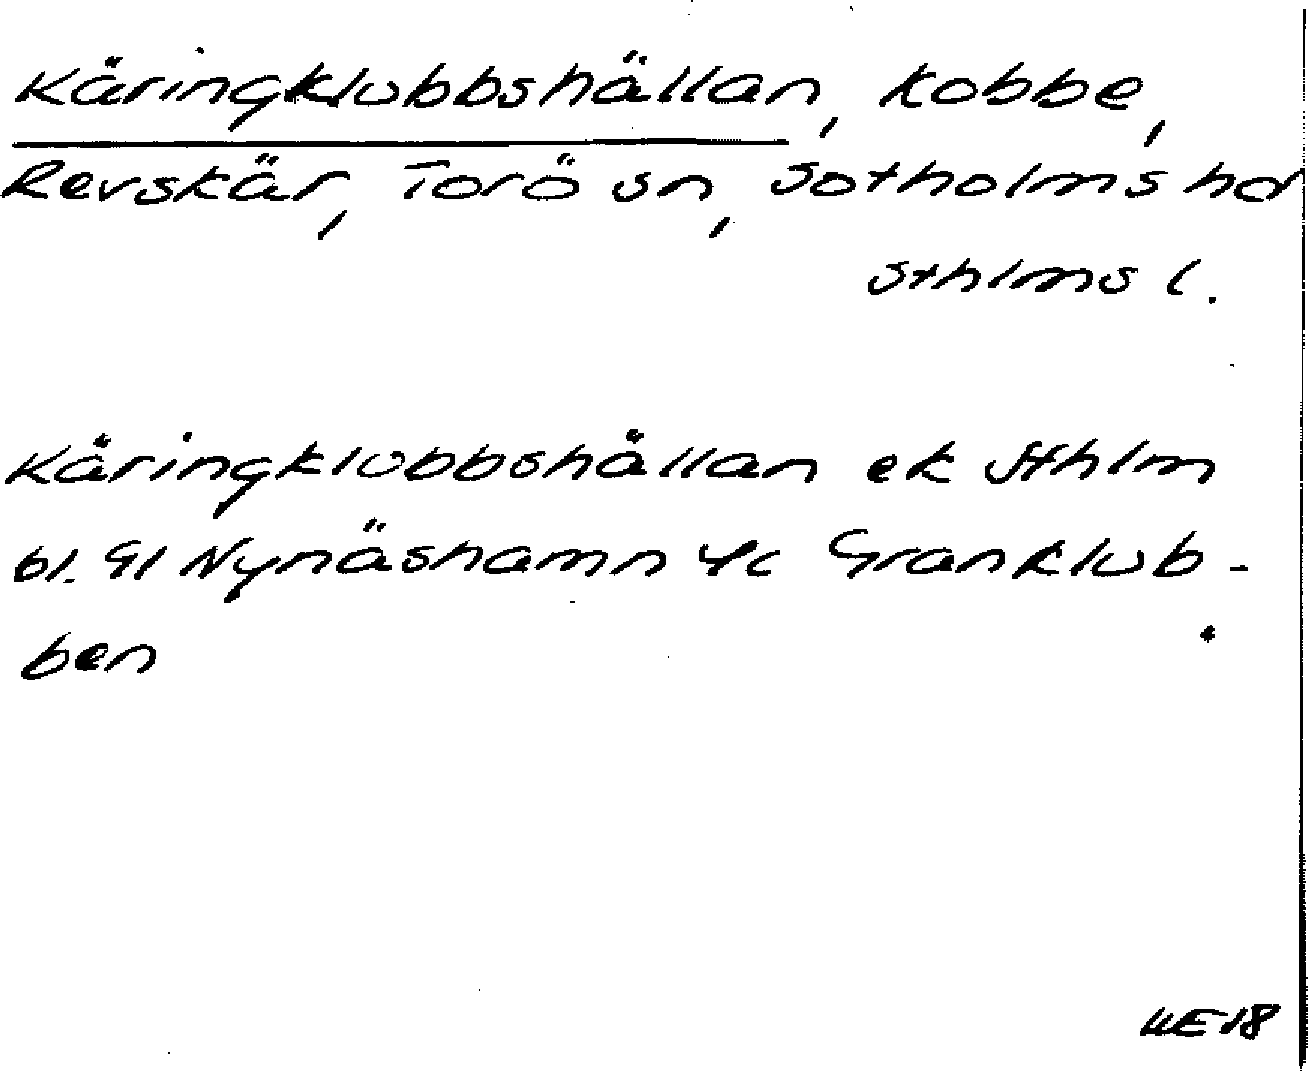 Käringklubbshällan, kobbe,
Revskär, Torö sn, Sotholms hd
Sthlms l.
Käringklubbshällan ek Sthlm
bl. 91 Nynäshamn 4c Granklub-
ben